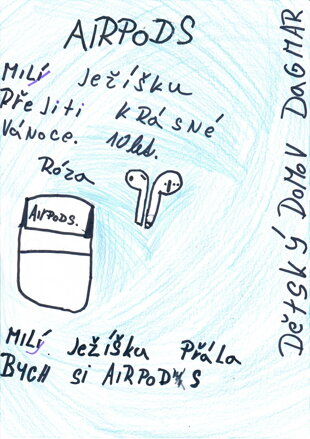 AIRPODS
MILÍ JEŽÍŠKU
PŘEJI TI KRÁSNÉ
VÁNOCE. 10 let.
RÓZA
AIRPODS.
MILÍ JEŽÍŠKU PŘÁLA
BYCH SI AIRPODS
DĚTSKÝ DOMOV DAGMAR